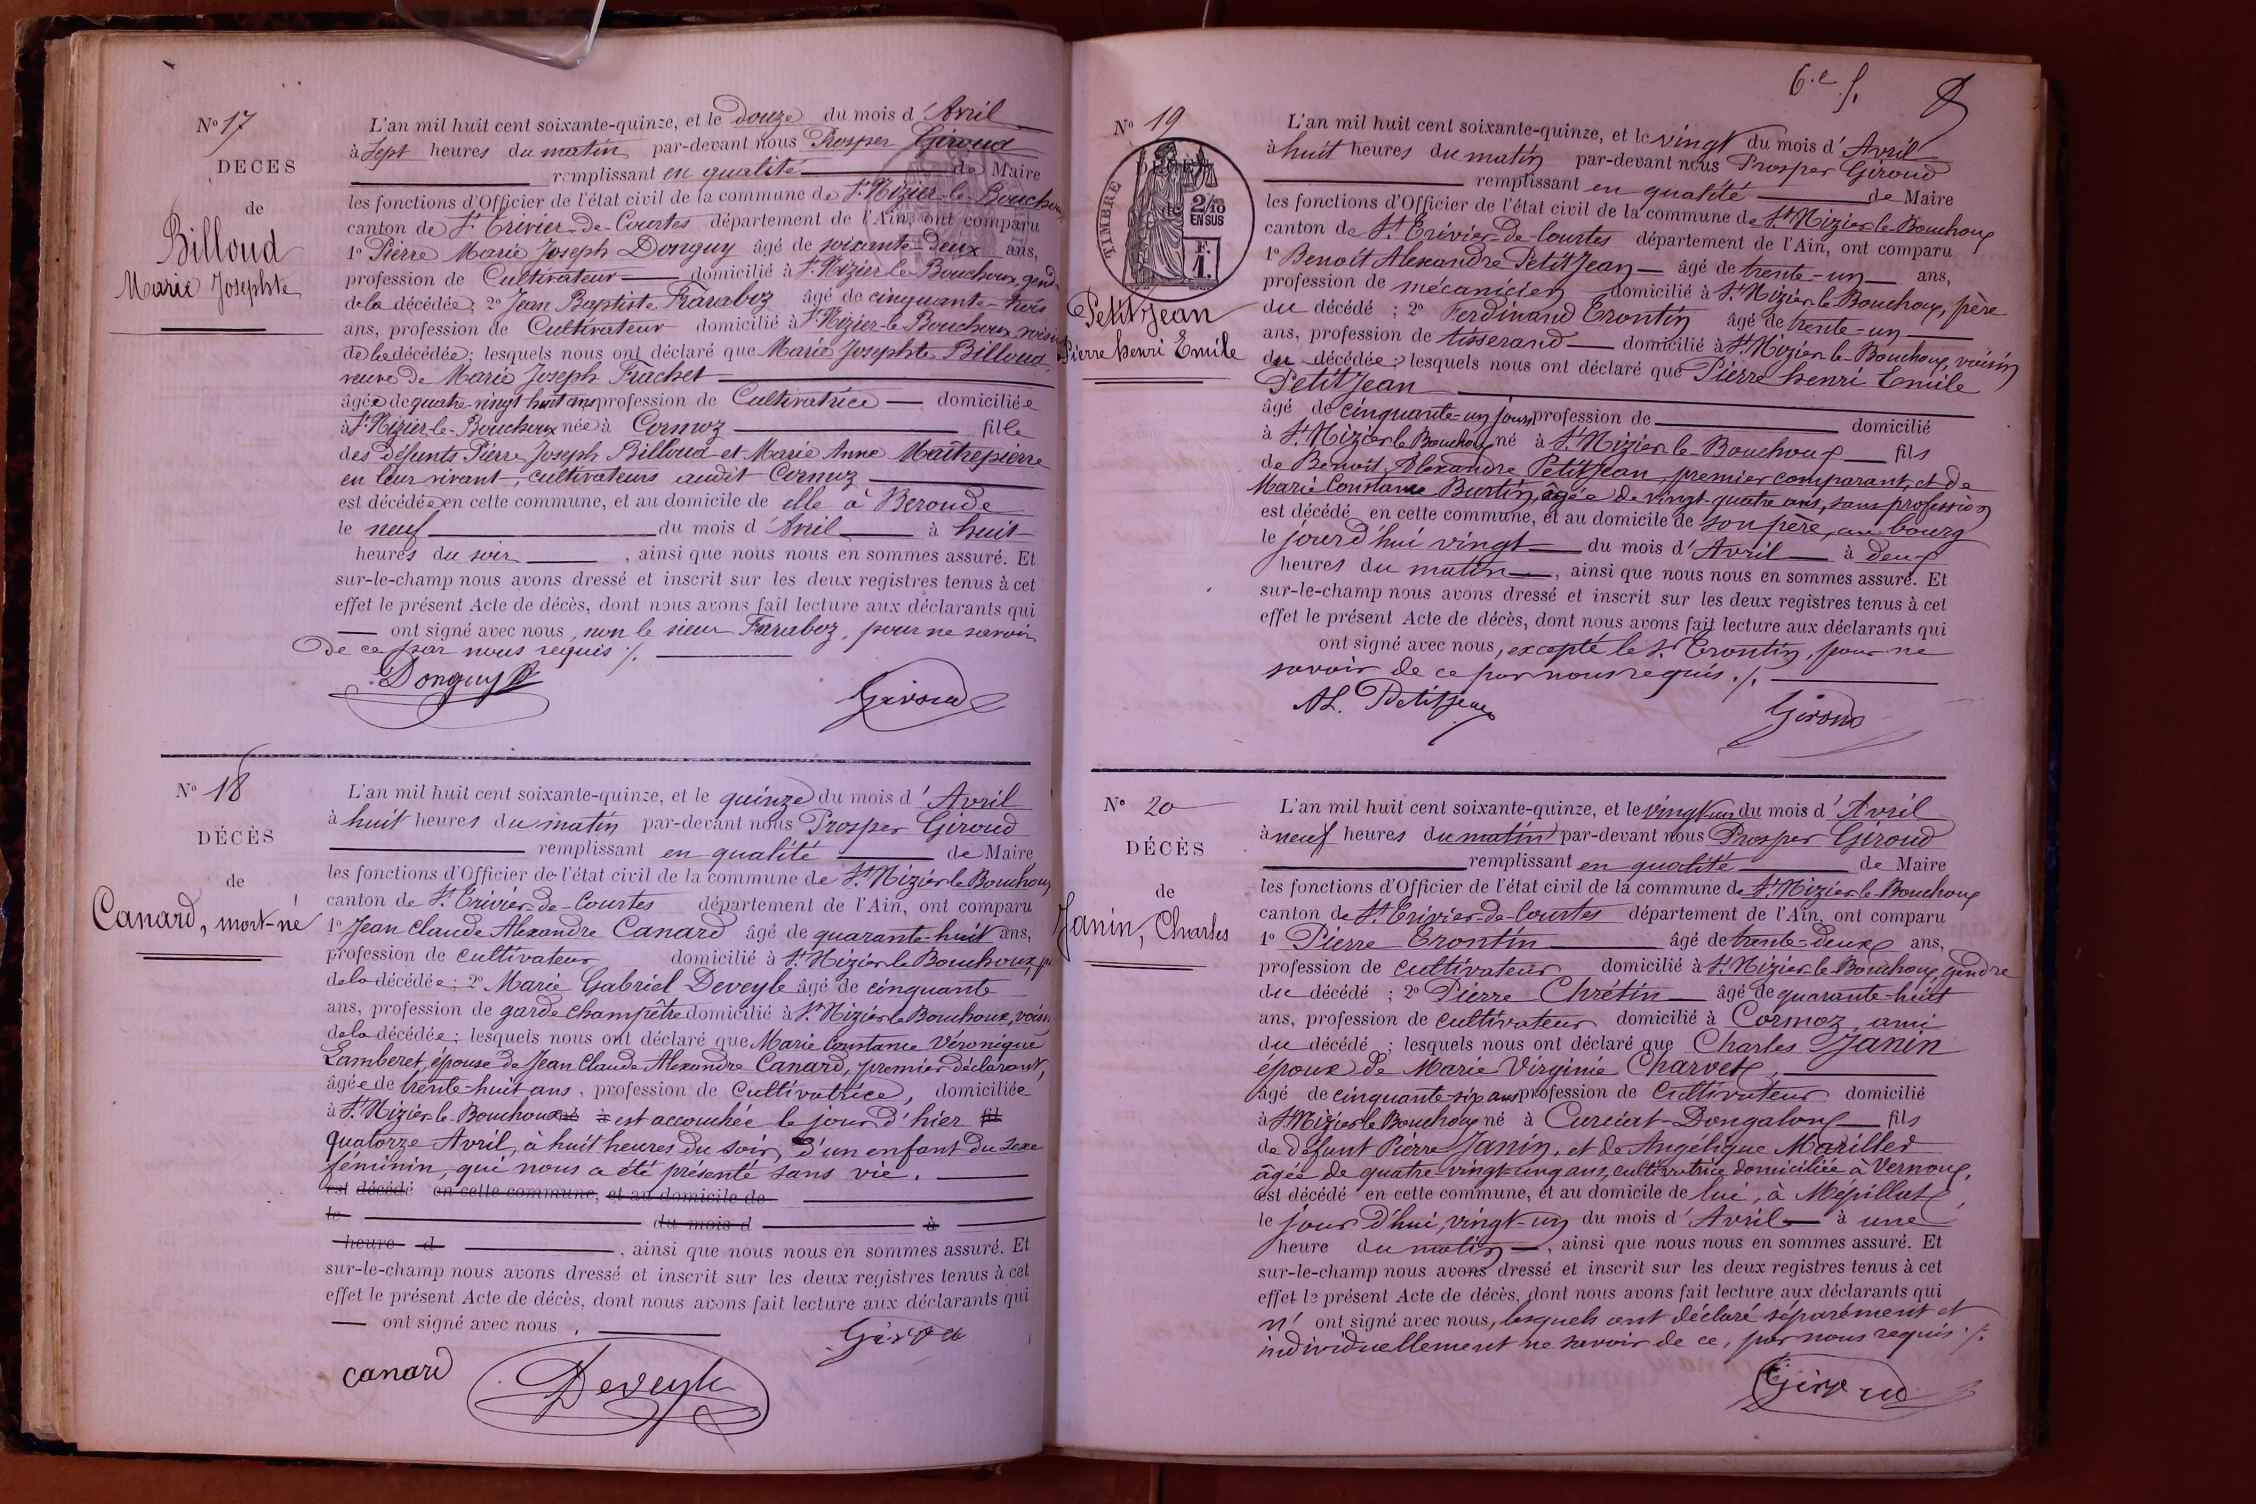 N° 17
DECES
de
Billoud
Marie Josephte
L'an mil huit cent soixante-quinze, et le douze du mois d'Avril
à sept heures du matin par-devant nous Prosper Giroud
remplissant en qualité de Maire
les fonctions d'Officier de l'état civil de la commune de St Nizier-le-Bouchoux
canton de St Trivier-de-Courtes département de l'Ain, ont comparu
1° Pierre Marie Joseph Donguy âgé de soixante-deux ans,
profession de Cultivateur domicilié à St Nizier-le-Bouchoux, gendre
de la décédée; 2° Jean Baptiste Faraboz âgé de cinquante-trois
ans, profession de Cultivateur domicilié à St Nizier-le-Bouchoux, voisin
de la décédée; lesquels nous ont déclaré que Marie Josephte Billoud,
veuve de Marie Joseph Frachet
âgée de quatre-vingt huit ans profession de Cultivatrice domiciliée
à St Nizier-le-Bouchoux née à Cormoz fille
des défunts Pierre Joseph Billoud et Marie Anne Maîtrepierre
en leur vivant, cultivateurs audit Cormoz
est décédée en cette commune, et au domicile de elle à Beroude
le neuf du mois d'Avril à huit
heures du soir, ainsi que nous nous en sommes assuré. Et
sur-le-champ nous avons dressé et inscrit sur les deux registres tenus à cet
effet le présent Acte de décès, dont nous avons fait lecture aux déclarants qui
ont signé avec nous, non le sieur Faraboz, pour ne savoir
de ce par nous requis ./.
Donguy
Giroud
N° 18
DÉCÈS
de
Canard, mort-né
L'an mil huit cent soixante-quinze, et le quinze du mois d'Avril
à huit heures du matin par-devant nous Prosper Giroud
remplissant en qualité de Maire
les fonctions d'Officier de l'état civil de la commune de St Nizier le Bouchoux
canton de St Trivier-de-Courtes département de l'Ain, ont comparu
1° Jean Claude Alexandre Canard âgé de quarante-huit ans,
profession de cultivateur domicilié à St Nizier le Bouchoux,
de la décédée; 2° Marie Gabriel Deveyle âgé de cinquante
ans, profession de garde champêtre domicilié à St Nizier le Bouchoux, voisin
de la décédée; lesquels nous ont déclaré que Marie Constance Véronique
Lamberet, épouse de Jean Claude Alexandre Canard, premier déclarant,
âgée de trente-huit ans, profession de Cultivatrice, domiciliée
à St Nizier le Bouchoux né à est accouchée le jour d'hier fil
quatorze Avril, à huit heures du soir, d'un enfant du sexe
féminin, qui nous a été présenté sans vie.
est décédé en cette commune, et au domicile de
le du mois d à
heure d, ainsi que nous nous en sommes assuré. Et
sur-le-champ nous avons dressé et inscrit sur les deux registres tenus à cet
effet le présent Acte de décès, dont nous avons fait lecture aux déclarants qui
ont signé avec nous.
Giroud
canard
Deveyle
6.e f.
8
N° 19
TIMBRE
2/10
EN SUS
F.
1.
Petitjean
Pierre henri Emile
L'an mil huit cent soixante-quinze, et le vingt du mois d'Avril
à huit heures du matin par-devant nous Prosper Giroud
remplissant en qualité de Maire
les fonctions d'Officier de l'état civil de la commune de St Nizier le Bouchoux
canton de St Trivier-de-Courtes département de l'Ain, ont comparu
1° Benoît Alexandre Petitjean âgé de trente-un ans,
profession de mécanicien domicilié à St Nizier le Bouchoux, père
du décédé; 2° Ferdinand Trontin âgé de trente-un
ans, profession de tisserand domicilié à St Nizier le Bouchoux, voisin
du décédée; lesquels nous ont déclaré que Pierre henri Emile
Petitjean
âgé de cinquante-un jours profession de domicilié
à St Nizier le Bouchoux né à St Nizier le Bouchoux fils
de Benoit Alexandre Petitjean, premier comparant, et de
Marie Constance Burtin, âgée de vingt-quatre ans, sans profession
est décédé en cette commune, et au domicile de son père, au bourg
le jourd'hui vingt du mois d'Avril à deux
heures du matin, ainsi que nous nous en sommes assuré. Et
sur-le-champ nous avons dressé et inscrit sur les deux registres tenus à cet
effet le présent Acte de décès, dont nous avons fait lecture aux déclarants qui
ont signé avec nous, excepté le s. Trontin, pour ne
savoir de ce par nous requis ./.
AL. Petitjean
Giroud
N° 20
DÉCÈS
de
Janin, Charles
L'an mil huit cent soixante-quinze, et le vingt un du mois d'Avril
à neuf heures du matin par-devant nous Prosper Giroud
remplissant en qualité de Maire
les fonctions d'Officier de l'état civil de la commune de St Nizier le Bouchoux
canton de St Trivier-de-Courtes département de l'Ain, ont comparu
1° Pierre Trontin âgé de trente-deux ans,
profession de cultivateur domicilié à St Nizier le Bouchoux, gendre
du décédé; 2° Pierre Chrétin âgé de quarante-huit
ans, profession de cultivateur domicilié à Cormoz, ami
du décédé; lesquels nous ont déclaré que Charles Janin
époux de Marie Virginie Charvet,
âgé de cinquante-six ans profession de Cultivateur domicilié
à St Nizier le Bouchoux né à Curciat-Dongalon fils
de défunt Pierre Janin, et de Angélique Mariller
âgée de quatre vingt-cinq ans, cultivatrice domiciliée à Vernoux,
est décédé en cette commune, et au domicile de lui, à Mépillat
le jour d'hui, vingt-un du mois d'Avril à une
heure du matin, ainsi que nous nous en sommes assuré. Et
sur-le-champ nous avons dressé et inscrit sur les deux registres tenus à cet
effet le présent Acte de décès, dont nous avons fait lecture aux déclarants qui
n' ont signé avec nous, lesquels ont déclaré séparément et
individuellement ne savoir de ce, par nous requis ./.
Giroud